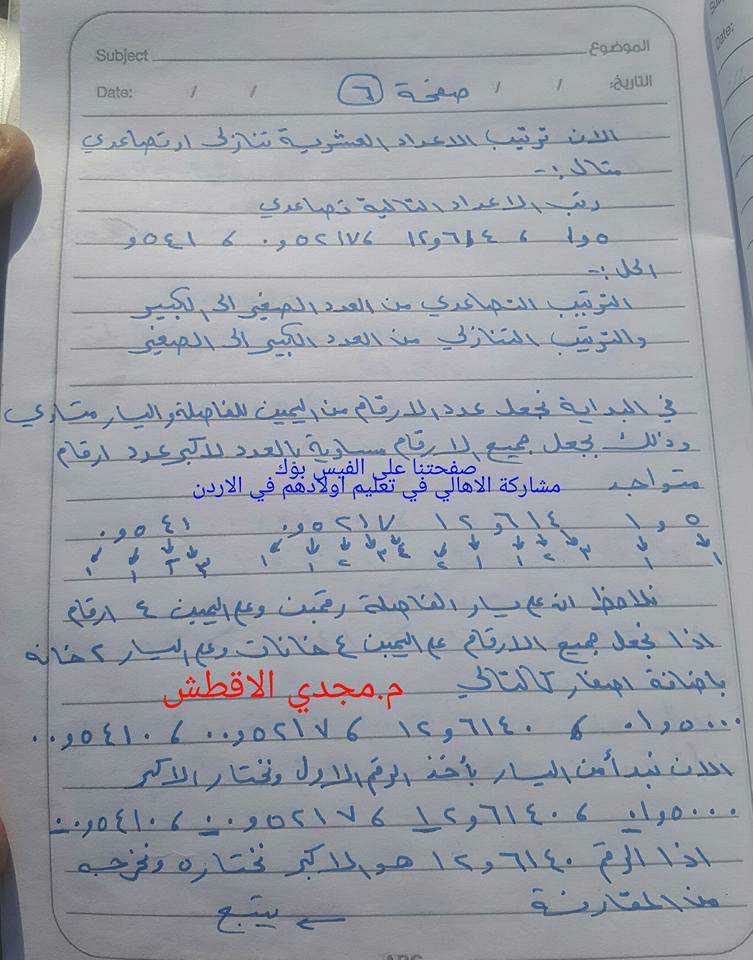 Subject الموضوع
Date: / / صفحة ٦ / / التاريخ:
الان ترتيب الاعداد العشرية تنازلي او تصاعدي
مثال :-
رتب الاعداد التالية تصاعدي
٥و١ ، ٦١٤و١٢ ، ٥٢١٧و٠ ، ٥٤١و٠
الحل :-
الترتيب التصاعدي من العدد الصغير الى الكبير
والترتيب التنازلي من العدد الكبير الى الصغير
في البداية نجعل عدد الارقام من اليمين للفاصلة واليسار متساوي
وذلك بجعل جميع الارقام مساوية بالعدد لأكبر عدد ارقام
صفحتنا على الفيس بؤك
مشاركة الاهالي في تعليم اولادهم في الاردن
متواجد
٥و١ ٦١٤و١٢ ٥٢١٧و٠ ٥٤١و٠
١ ١ ٣ ٢ ١ ١ ٢ ٤ ٣ ٢ ١ ١ ٣ ٢ ١ ١
نلاحظ انه على يسار الفاصلة رقمين وعلى اليمين ٤ ارقام
اذا نجعل جميع الارقام على اليمين ٤ خانات وعلى اليسار ٢ خانه
باضافة اصفار كالتالي
م.مجدي الاقطش
٥٠٠٠و٠١ ، ٦١٤٠و١٢ ، ٥٢١٧و٠٠ ، ٥٤١٠و٠٠
الان نبدأ من اليسار بأخذ الرقم الاول ونختار الاكبر
٥٠٠٠و٠١ ، ٦١٤٠و١٢ ، ٥٢١٧و٠٠ ، ٥٤١٠و٠٠
اذا الرقم ٦١٤٠و١٢ هو الاكبر نختاره ونخرجه
من المقارنة ← يتبع